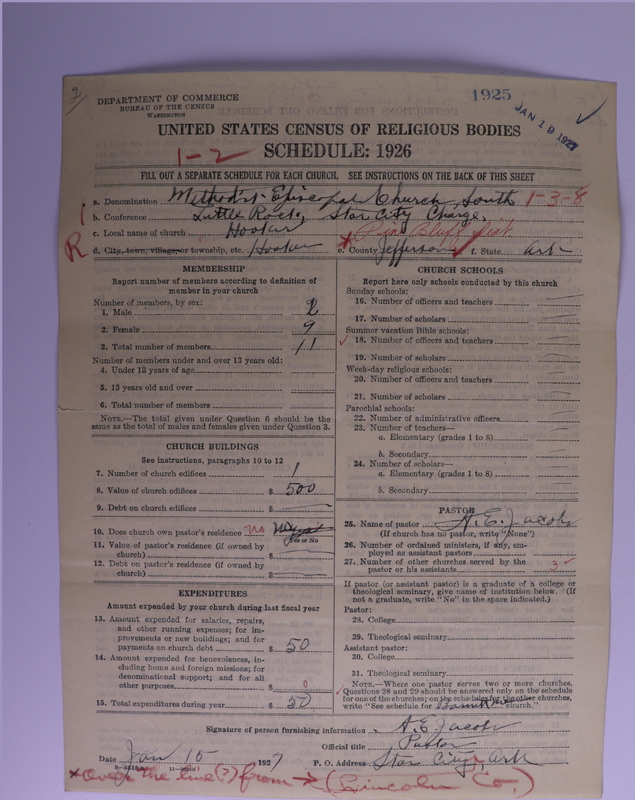 2
DEPARTMENT OF COMMERCE
BUREAU OF THE CENSUS
WASHINGTON
1925
JAN 19 1927
UNITED STATES CENSUS OF RELIGIOUS BODIES
1-2
SCHEDULE: 1926
FILL OUT A SEPARATE SCHEDULE FOR EACH CHURCH. SEE INSTRUCTIONS ON THE BACK OF THIS SHEET
a. Denomination Methodist Episcopal Church, South 1-3-8
b. Conference Little Rock, Star City Charge,
c. Local name of church Hooker Pine Bluff Dist
R
d. City, town, village, or township, etc. Hooker e. County Jefferson f. State Ark
MEMBERSHIP
Report number of members according to definition of
member in your church
Number of members, by sex:
1. Male 2
2. Female 9
3. Total number of members 11
Number of members under and over 13 years old:
4. Under 13 years of age
5. 13 years old and over
6. Total number of members
NOTE.—The total given under Question 6 should be the
same as the total of males and females given under Question 3.
CHURCH BUILDINGS
See instructions, paragraphs 10 to 12
7. Number of church edifices 1
8. Value of church edifices $ 500
9. Debt on church edifices $
10. Does church own pastor's residence no
Yes or No
11. Value of pastor's residence (if owned by
church) $
12. Debt on pastor's residence (if owned by
church) $
EXPENDITURES
Amount expended by your church during last fiscal year
13. Amount expended for salaries, repairs,
and other running expenses; for im-
provements or new buildings; and for
payments on church debt $ 50
14. Amount expended for benevolences, in-
cluding home and foreign missions; for
denominational support; and for all
other purposes $ 0
15. Total expenditures during year $ 50
CHURCH SCHOOLS
Report here only schools conducted by this church
Sunday schools:
16. Number of officers and teachers
17. Number of scholars
Summer vacation Bible schools:
18. Number of officers and teachers
19. Number of scholars
Week-day religious schools:
20. Number of officers and teachers
21. Number of scholars
Parochial schools:
22. Number of administrative officers
23. Number of teachers—
a. Elementary (grades 1 to 8)
b. Secondary
24. Number of scholars—
a. Elementary (grades 1 to 8)
b. Secondary
PASTOR
25. Name of pastor A. E. Jacobs
(If church has no pastor, write "None")
26. Number of ordained ministers, if any, em-
ployed as assistant pastors
27. Number of other churches served by the
pastor or his assistants 3
If pastor (or assistant pastor) is a graduate of a college or
theological seminary, give name of institution below. (If
not a graduate, write "No" in the space indicated.)
Pastor:
28. College
29. Theological seminary
Assistant pastor:
30. College
31. Theological seminary
NOTE.—Where one pastor serves two or more churches,
Questions 28 and 29 should be answered only on the schedule
for one of the churches; on the schedules for the other churches,
write "See schedule for church."
Signature of person furnishing information A. E. Jacobs
Official title Pastor
Date Jan 15 1927 P. O. Address Star City, Ark
Over the line(?) from → (Lincoln Co.)